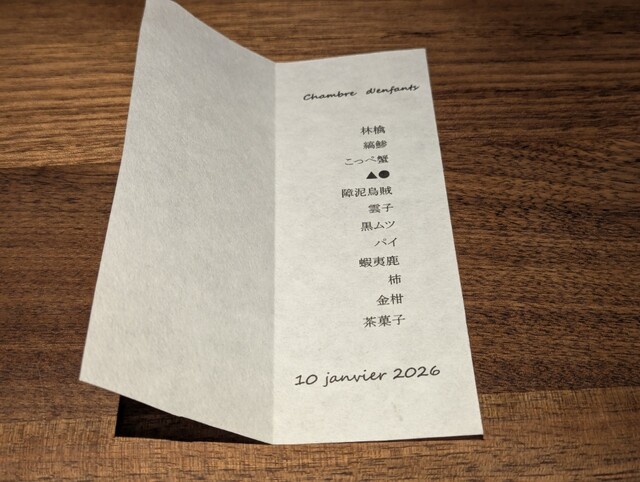 Chambre d'enfants
林檎
縞鯵
こっぺ蟹
▲●
障泥烏賊
雲子
黒ムツ
パイ
蝦夷鹿
柿
金柑
茶菓子
10 janvier 2026